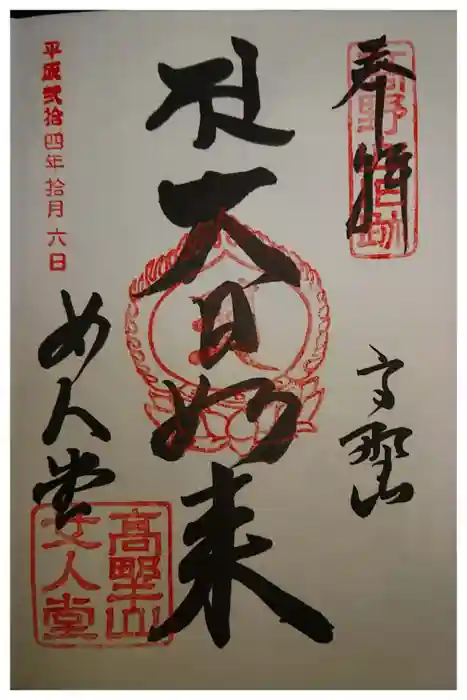 奉拝
高野山
大日如来
女人堂
平成弐拾四年 拾月 六日
高野山
女人堂